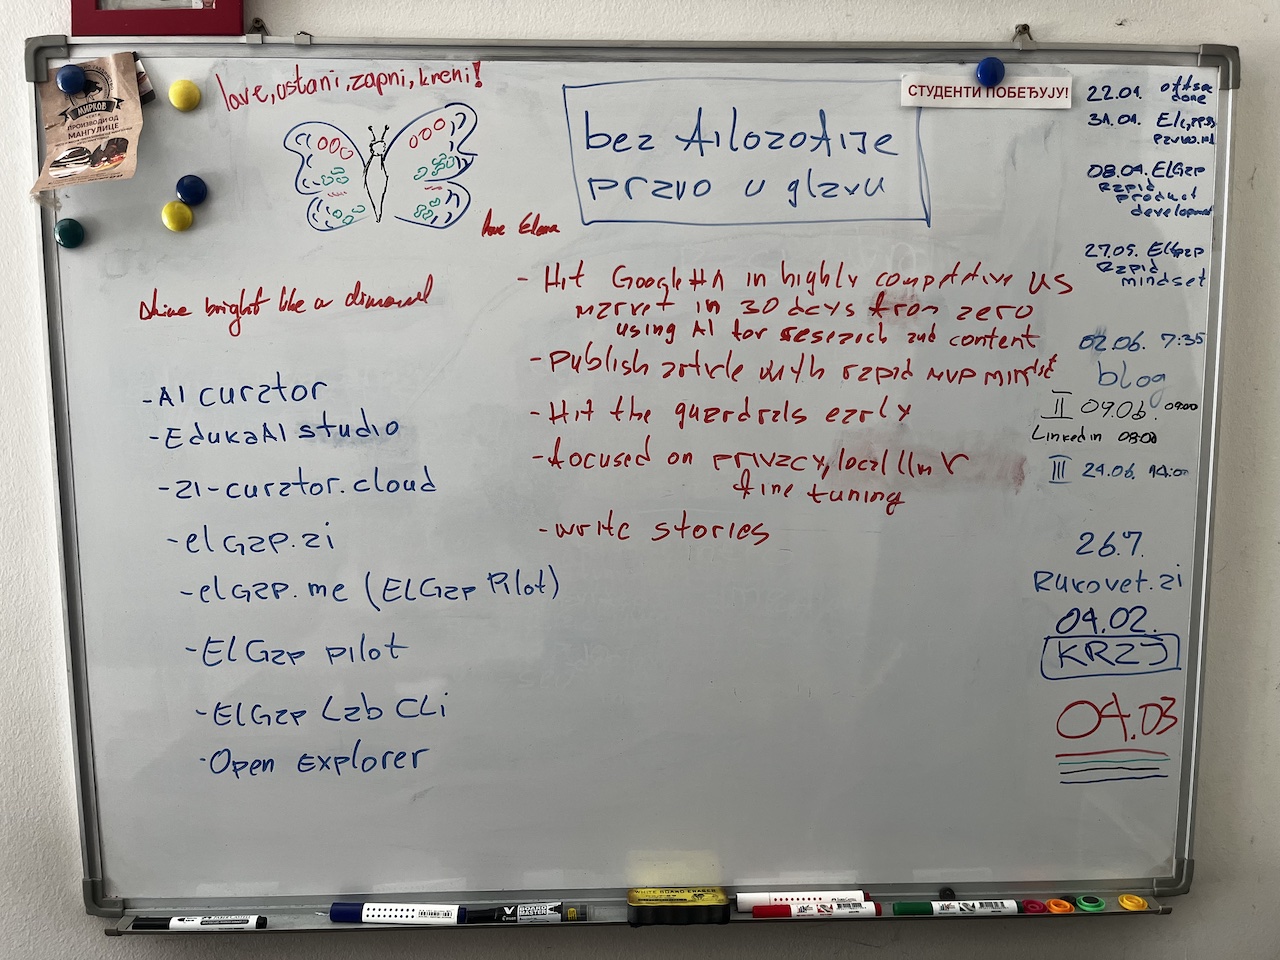 МИРКОВ
ПРОИЗВОДИ ОД
МАНГУЛИЦЕ
love, ustani, zapni, kreni!
love Elena
Shine bright like a diamond
bez filozofije
pravo u glavu
СТУДЕНТИ ПОБЕЂУЈУ!
- AI curator
- EdukaAI studio
- ai-curator.cloud
- elGap.ai
- elGap.me (ElGap Pilot)
- ElGap pilot
- ElGap Lab CLi
- Open Explorer
- Hit Google #1 in highly competitive US
market in 30 days from zero
using AI for research and content
- Publish article with rapid MVP mindset
- Hit the guardrails early
- focused on privacy, local llm
fine tuning
- write stories
22.01.
done
31.01.
08.04. ElGap
Rapid
product
development
27.05. ElGap
Rapid
mindset
02.06. 7:35
blog
II 09.06. 09:00
Linkedin 08:00
III 24.06.
26.7.
Rukovet.ai
04.02.
KRAJ
04.03
WHITE BOARD ERASER
BOARD
MASTER